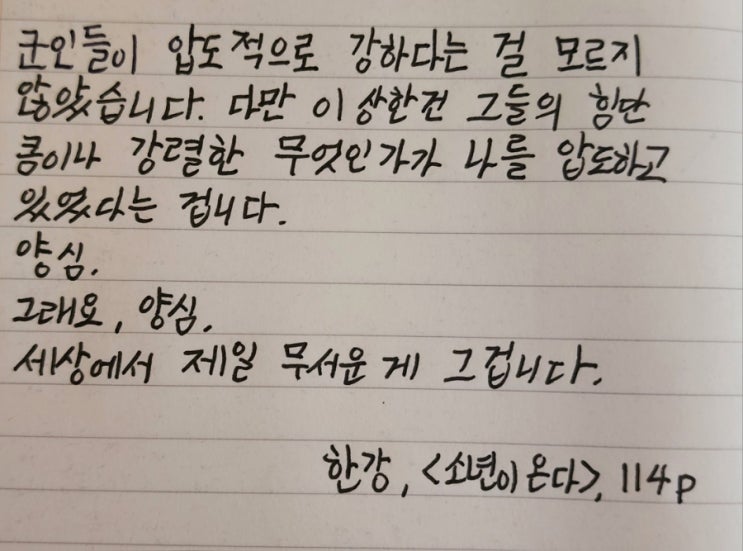 군인들이 압도적으로 강하다는 걸 모르지
않았습니다. 다만 이상한건 그들의 힘만
큼이나 강렬한 무엇인가가 나를 압도하고
있었다는 겁니다.
양심.
그래요, 양심.
세상에서 제일 무서운 게 그겁니다.
한강, <소년이 온다>, 114p